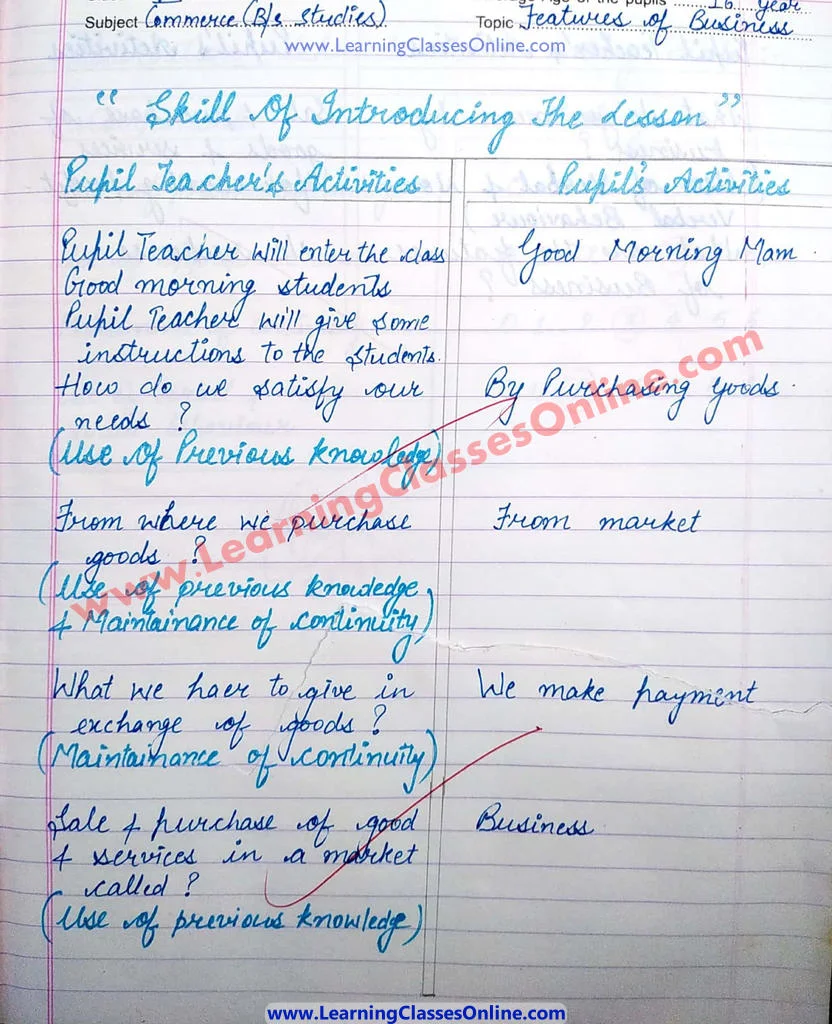 Subject Commerce (B/s Studies)
16 year
Topic Features of Business
www.LearningClassesOnline.com
" Skill Of Introducing The Lesson "
Pupil Teacher's Activities
Pupil's Activities
Pupil Teacher will enter the class
Good Morning Mam.
Good morning students
Pupil Teacher will give some
instructions to the students.
How do we satisfy our
By Purchasing goods.
needs ?
(Use of Previous knowledge)
From where we purchase
From market
goods ?
(Use of previous knowledge
& Maintainance of continuity)
What we haer to give in
We make payment
exchange of goods ?
(Maintainance of continuity)
Sale & purchase of good
Business
& services in a market
called ?
(Use of previous knowledge)
www.LearningClassesOnline.com
www.LearningClassesOnline.com